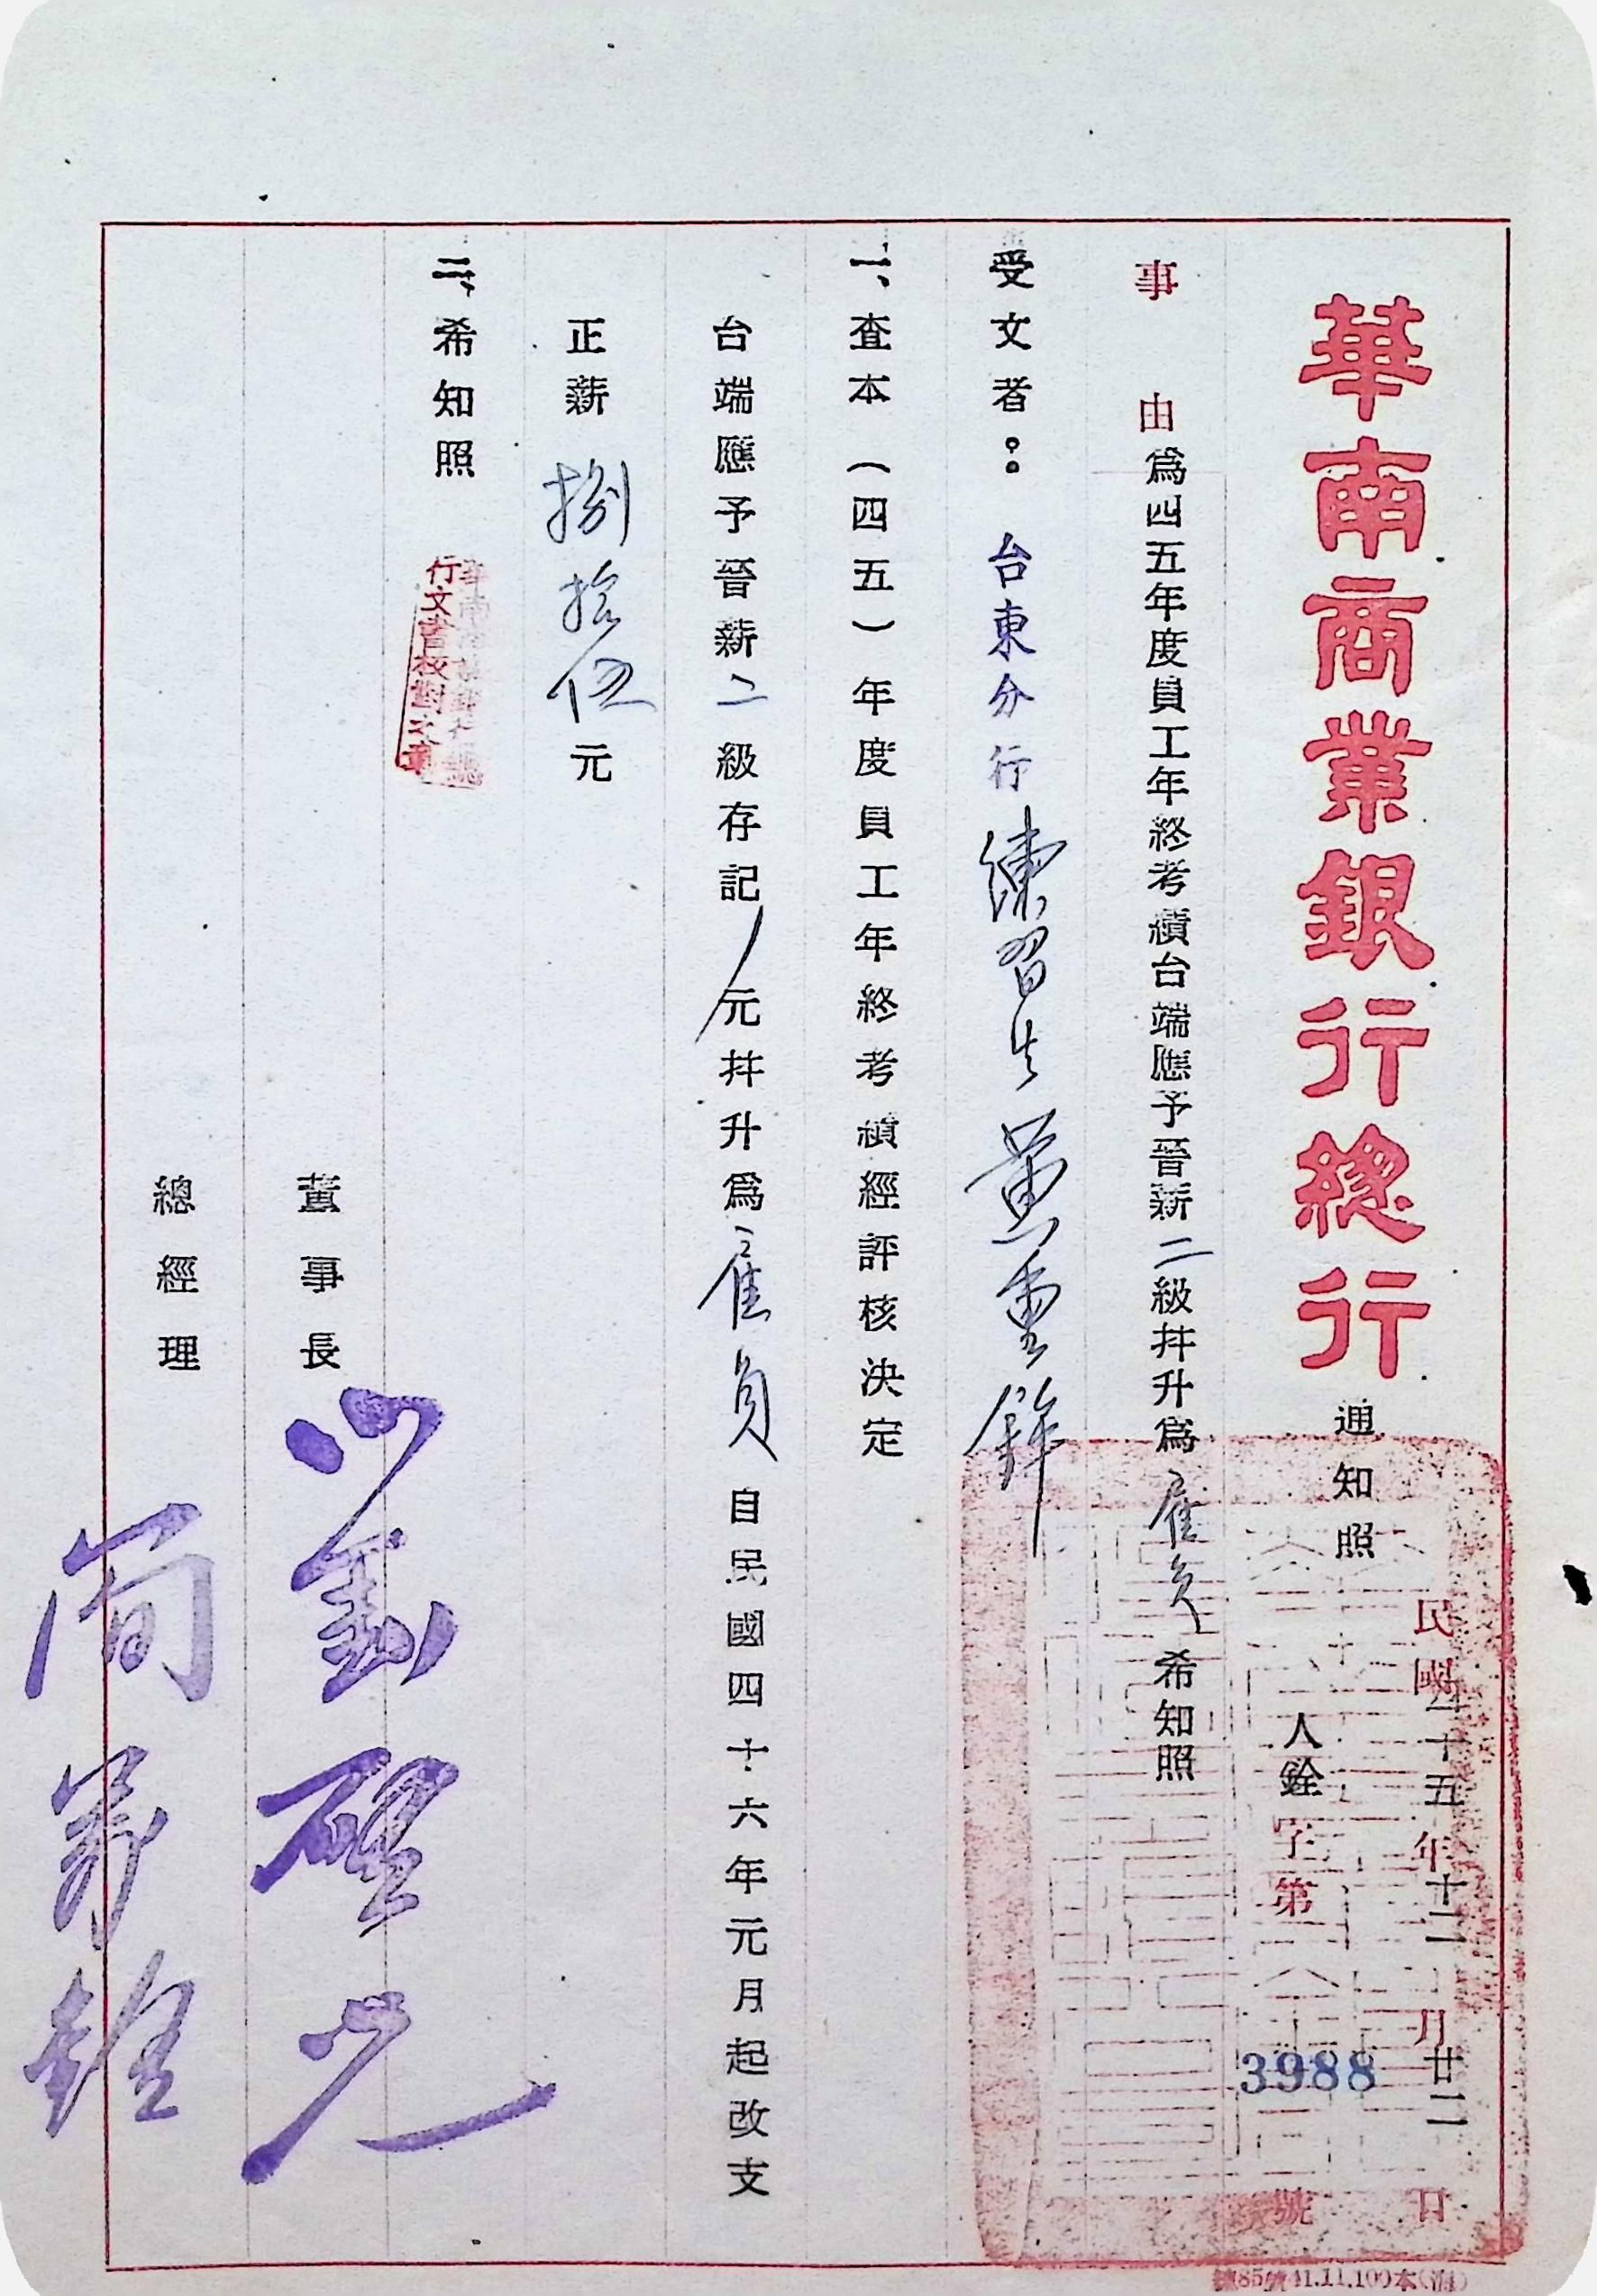 華南商業銀行總行 通知照
民國四十五年十二月廿二日
人銓字第3988號
事由 爲四五年度員工年終考績台端應予晉薪二級拜升爲雇員希知照
受文者：台東分行 練習生 黃重鉾
一、查本（四五）年度員工年終考績經評核決定
台端應予晉薪二級存記/元拜升爲雇員自民國四十六年元月起改支
正薪捌拾伍元
二、希知照
行文書校對之章
董事長 劉啓光
總經理
總85號41.11.100本(海)